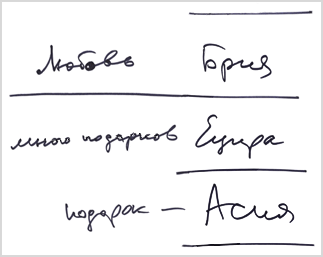 Любовь Брия
много подарков Ецира
подарок — Асия